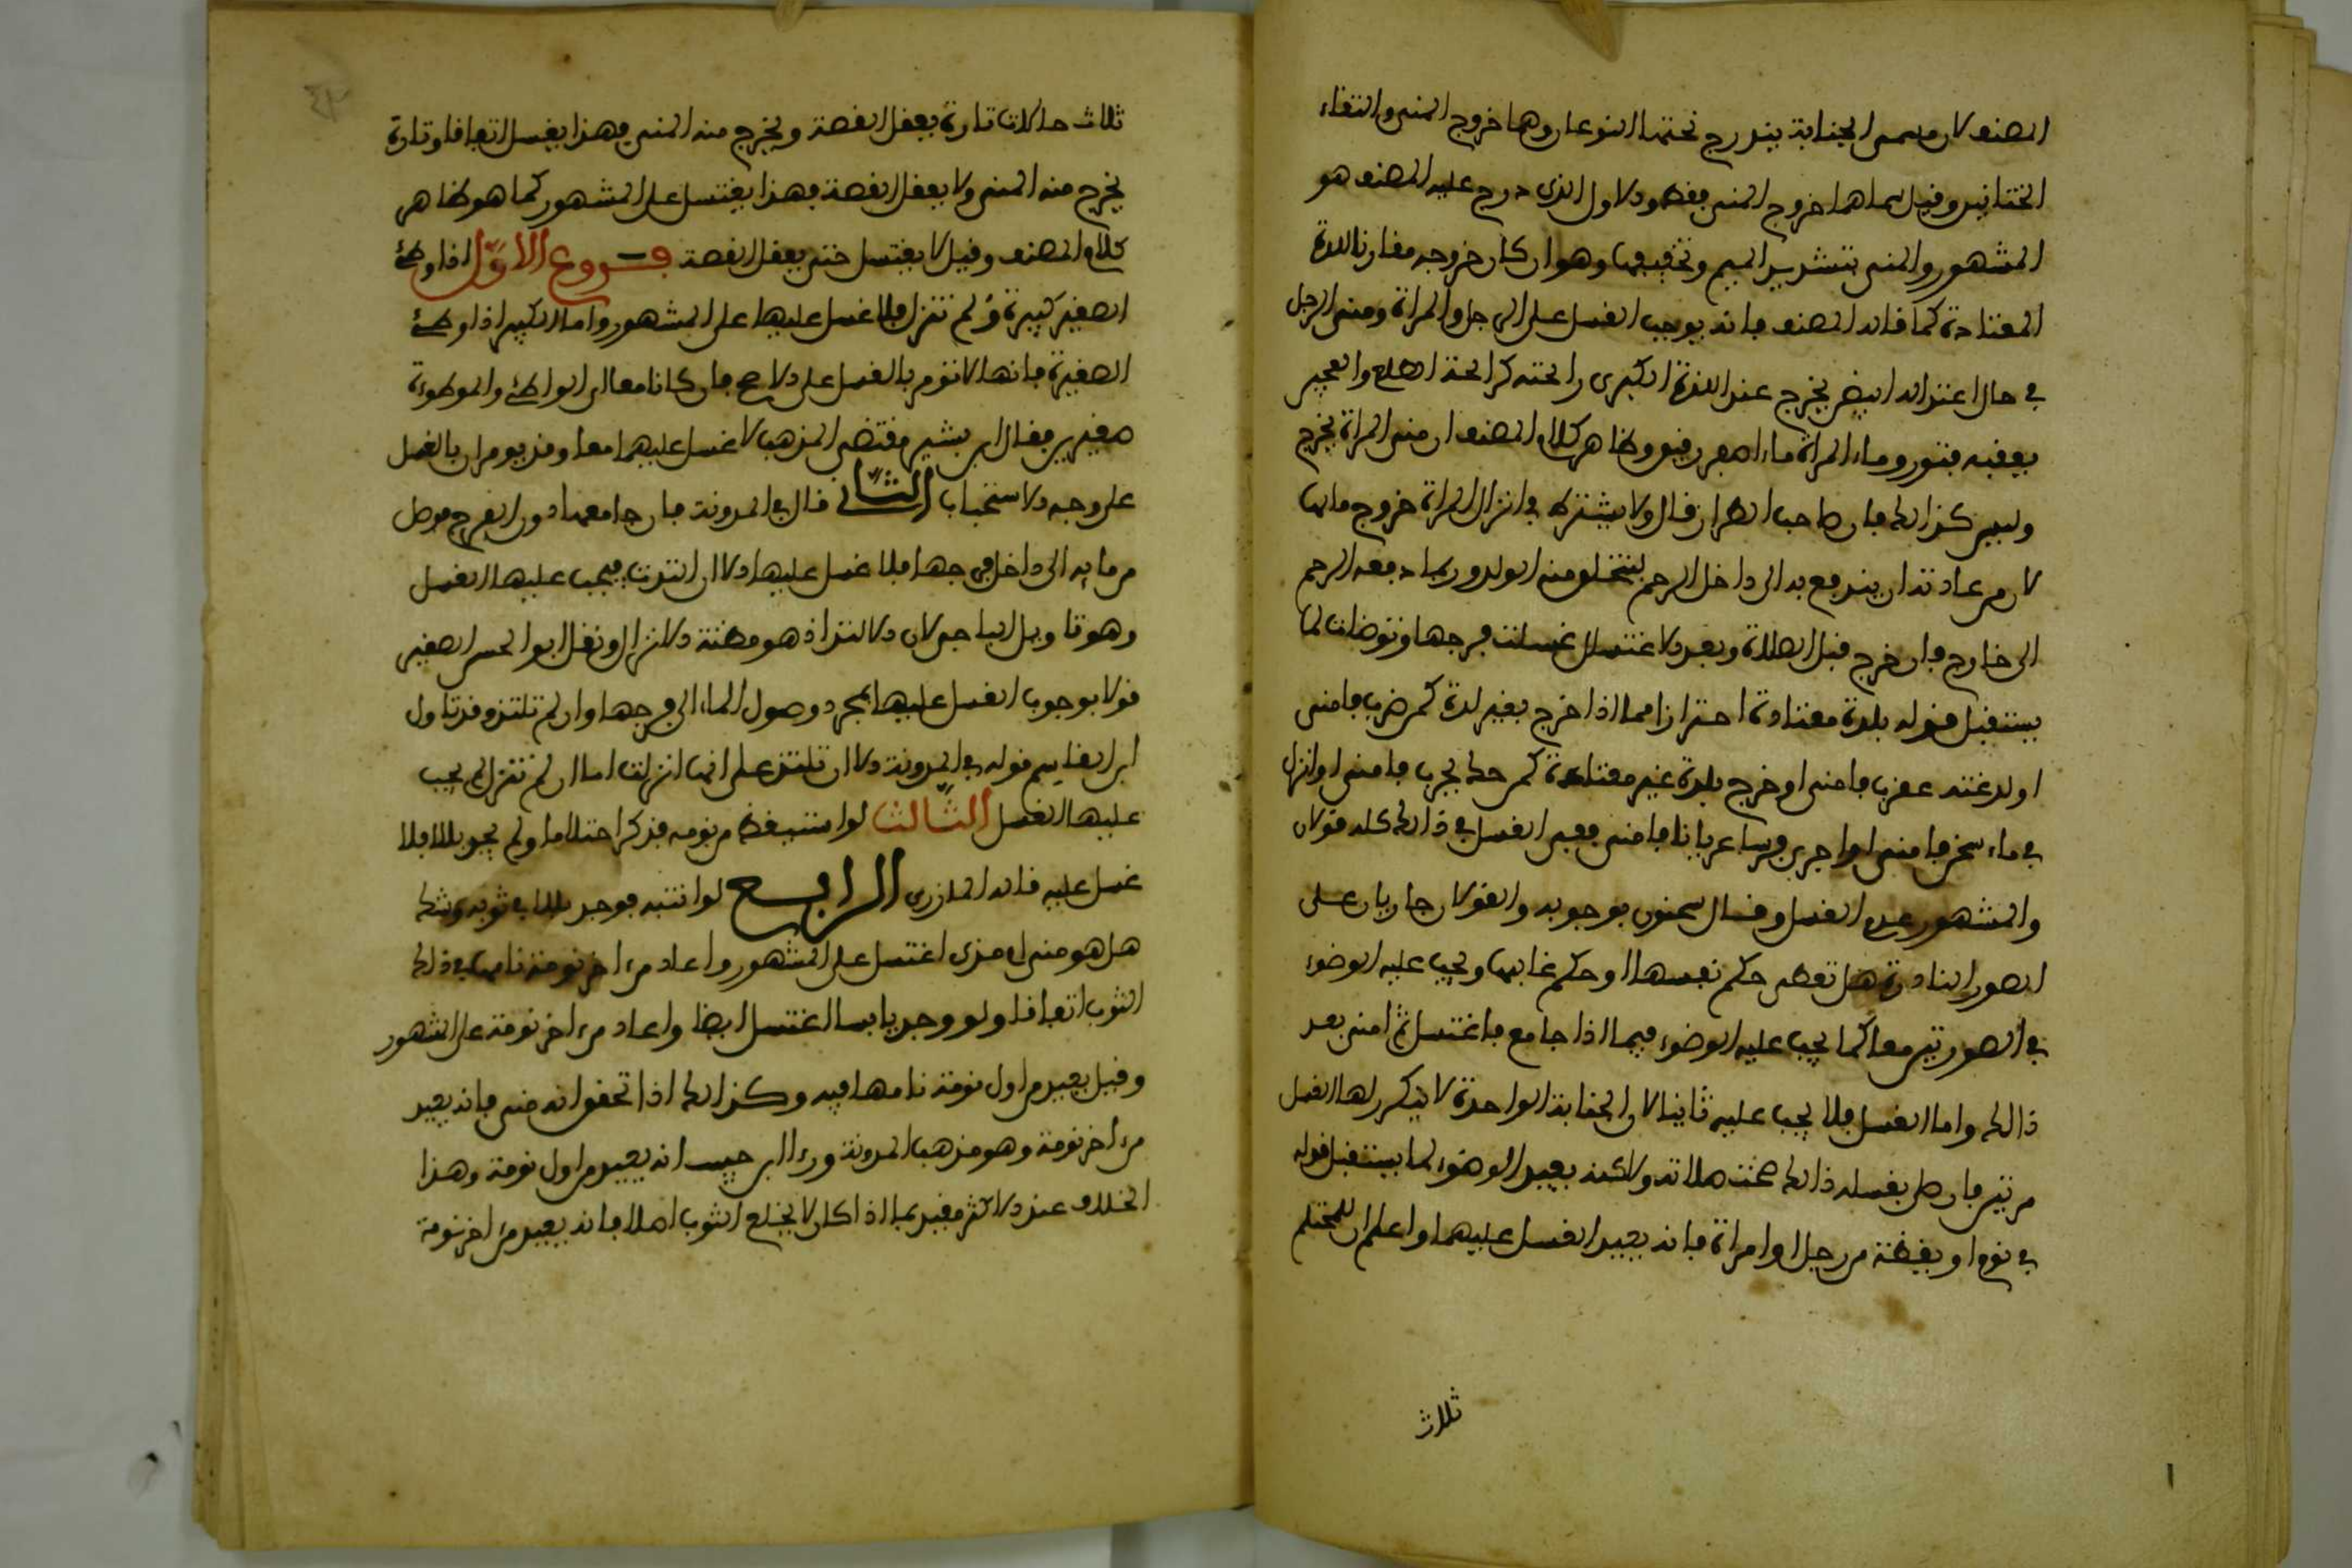 المصنف لان مسمى الجنابة يندرج تحتها النوعان وهما خروج المني والتقاء
الختانين وقيل سماهما خروج المني فقط والاول الذي درج عليه المصنف هو
المشهور والمني بتشديد الميم وتخفيفها وهو ان كان خروجه مقارنا للذة
المعتادة كما قاله المصنف فانه يوجب الغسل على الرجل والمراة ومني الرجل
في حال اعتداله ابيض يخرج عند اللذة الكبرى رائحته كرائحة الطلع والعجين
يعقبه فتور وماء المراة ماء اصفر رقيق وظاهر كلام المصنف ان مني المراة يخرج
وليس كذالك فان صاحب الطراز قال ولا يشترط في انزال المراة خروج مائها
لان من عادته ان يندفع به الى داخل الرحم ليتخلق منه الولد وربما دفعه الرحم
الى خارج فان خرج قبل الصلاة وبعد الاغتسال غسلت فرجها وتوضات لما
يستقبل قوله بلذة معتادة احترازا مما اذا خرج بغير لذة كمن ضرب فامنى
او لدغته عقرب فامنى او خرج بلذة غير معتادة كمن حك لجرب فامنى او انزل
في ماء سخن فامنى او اجرى فرسا عريانا فامنى ففي الغسل في ذالك كله قولان
والمشهور عدم الغسل وقال سحنون بوجوبه والقولان جاريان على
الصور النادرة هل تعطى حكم نفسها او حكم غالبها ويجب عليه الوضوء
في الصورتين معا كما يجب عليه الوضوء فيما اذا جامع فاغتسل ثم امنى بعد
ذالك واما الغسل فلا يجب عليه ثانيا لان الجنابة الواحدة لا يتكرر لها الغسل
مرتين فان صلى بغسله ذالك صحت صلاته ولاكنه يعيد الوضوء لما يستقبل قوله
في نوم او يقظة من رجل او امراة فانه يعيد الغسل عليهما واعلم ان للمحتلم
ثلاث
ثلاث حالات تارة يعقل القصة ويخرج منه المني فهذا يغتسل اتفاقا وتارة
يخرج منه المني ولا يعقل القصة فهذا يغتسل على المشهور كما هو ظاهر
كلام المصنف وقيل لا يغتسل حتى يعقل القصة فروع الاول اذا وطئ
الصغير كبيرة ولم تنزل فلا غسل عليها على المشهور واما الكبير اذا وطئ
الصغيرة فانها لا تؤمر بالغسل على الاصح فان كانا معا اي الواطئ والموطوءة
صغيرين فقال ابن بشير مقتضى المذهب لا غسل عليهما معا وقد يومران بالغسل
على وجه الاستحباب الثاني قال في المدونة فان جامعها دون الفرج فوصل
من مايه الى داخل فرجها فلا غسل عليها الا ان التذت فيجب عليها الغسل
وهو تاويل الباجي لان الالتذاذ هو مظنة الانزال ونقل ابو الحسن الصغير
قولا بوجوب الغسل عليها بمجرد وصول الماء الى فرجها وان لم تلتذ وقد تاول
ابن القاسم قوله في المدونة الا ان تلتذ على انها انزلت اما ان لم تنزل لم يجب
عليها الغسل الثالث لو استيقظ من نومه فذكر احتلاما ولم يجد بللا فلا
غسل عليه قاله المازري الرابع لو انتبه فوجد بللا في ثوبه وشك
هل هو مني او مذي اغتسل على المشهور واعاد من اخر نومة نامها في ذالك
الثوب اتفاقا ولو وجد يابسا اغتسل ايضا واعاد من اخر نومة على المشهور
وقيل يعيد من اول نومة نامها فيه وكذالك اذا تحقق انه مني فانه يعيد
من اخر نومة وهو مذهب المدونة وروى ابن حبيب انه يعيد من اول نومة وهذا
الخلاف عند الاكثر مقيد بما اذا كان لا يخلع الثوب اصلا فانه يعيد من اخر نومة